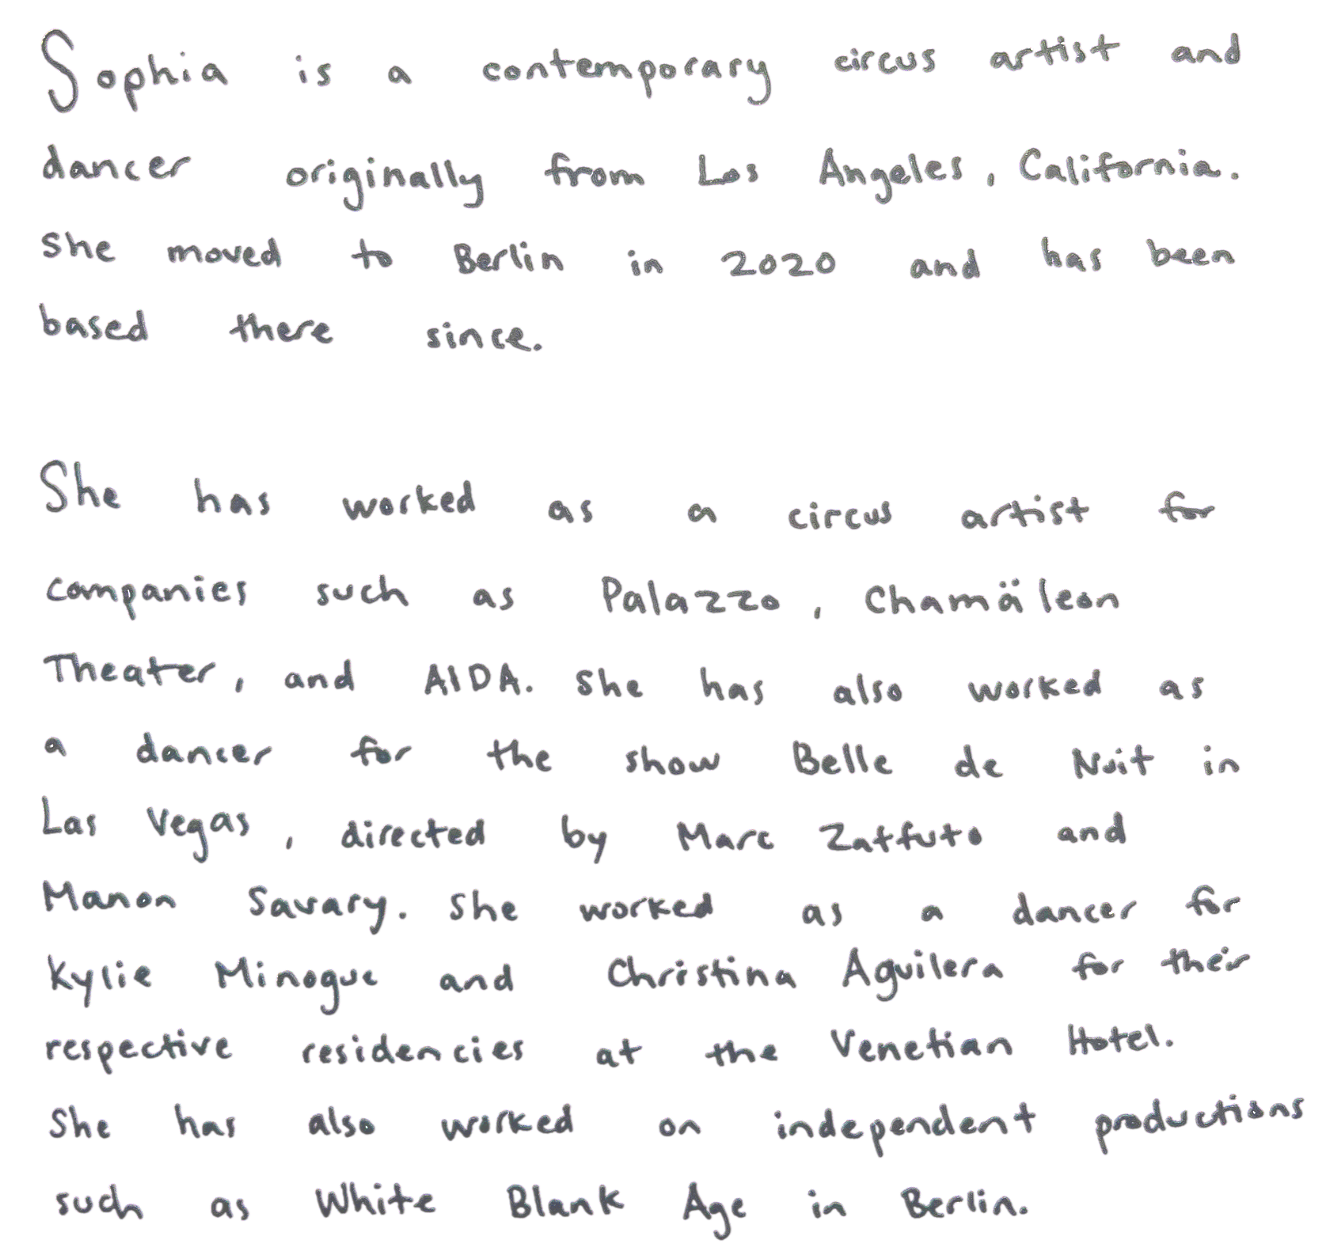 Sophia is a contemporary circus artist and
dancer originally from Los Angeles, California.
She moved to Berlin in 2020 and has been
based there since.
She has worked as a circus artist for
companies such as Palazzo, Chamäleon
Theater, and AIDA. She has also worked as
a dancer for the show Belle de Nuit in
Las Vegas, directed by Marc Zaffuto and
Manon Savary. She worked as a dancer for
Kylie Minogue and Christina Aguilera for their
respective residencies at the Venetian Hotel.
She has also worked on independent productions
such as White Blank Age in Berlin.